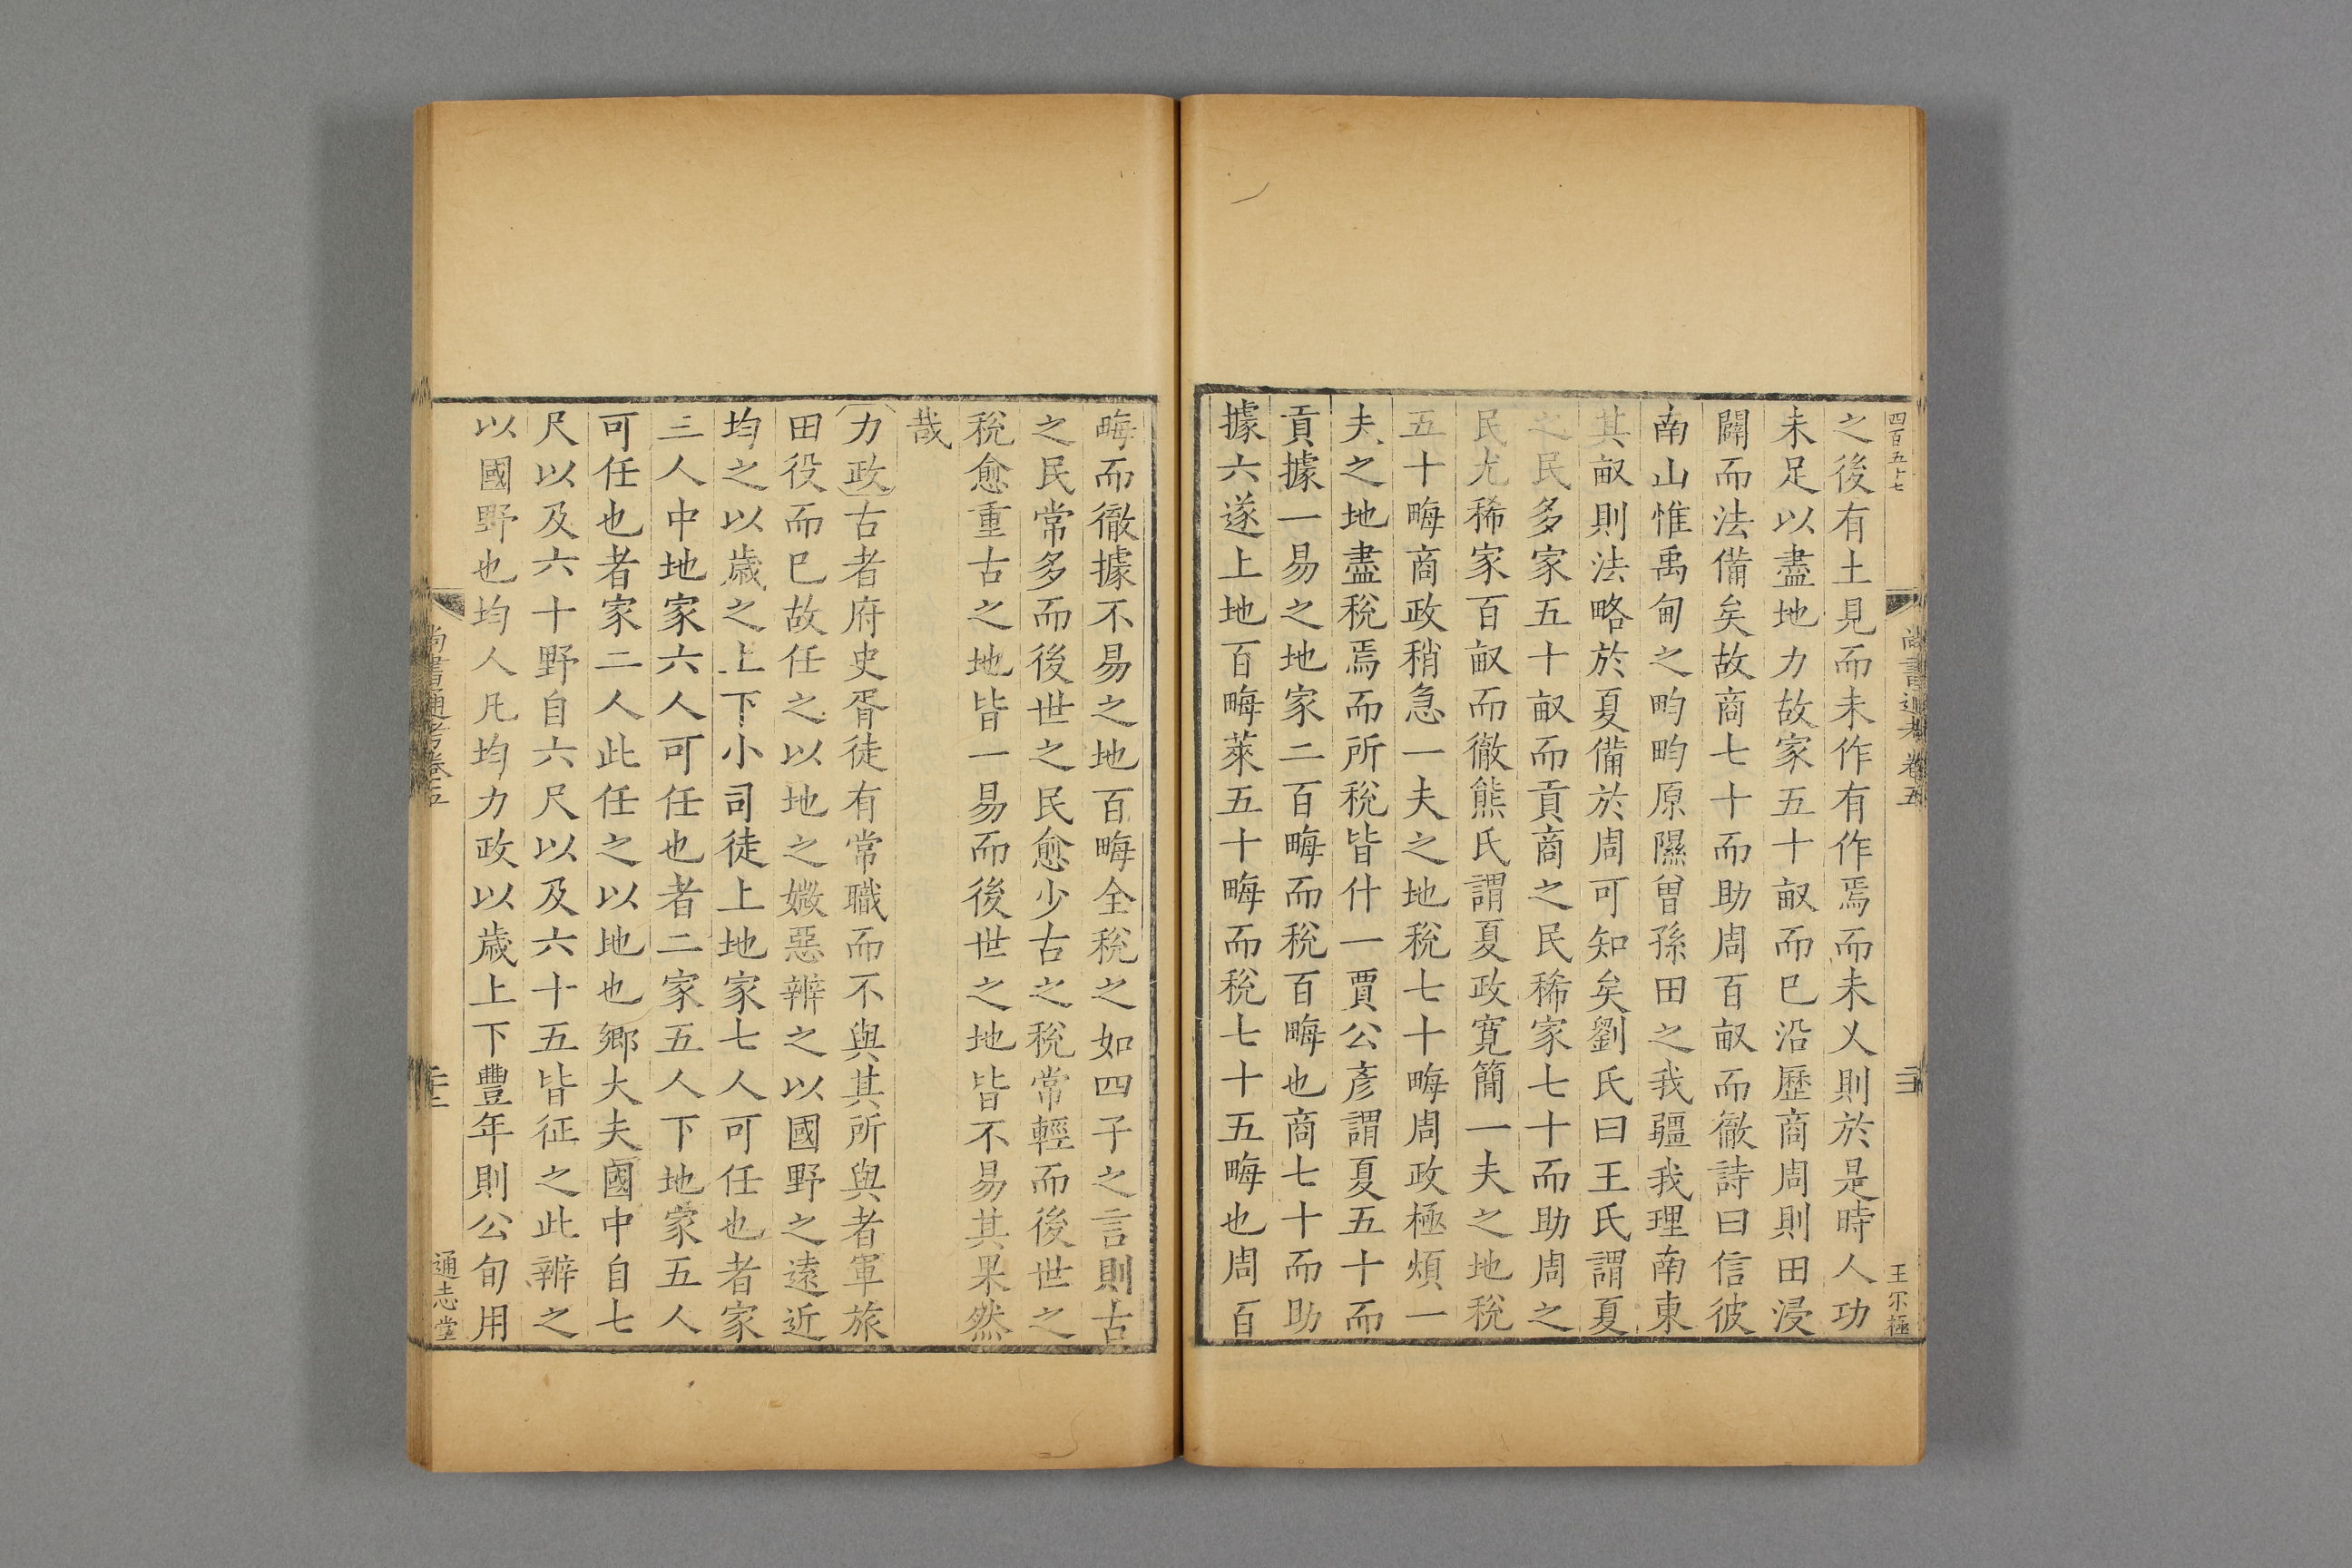 四百五十七
尚書通考卷五
王尔極
之後有土見而未作有作焉而未乂則於是時人功
未足以盡地力故家五十畝而巳沿歷商周則田浸
闢而法備矣故商七十而助周百畝而徹詩曰信彼
南山惟禹甸之畇畇原隰曾孫田之我疆我理南東
其畝則法略於夏備於周可知矣劉氏曰王氏謂夏
之民多家五十畝而貢商之民稀家七十而助周之
民尤稀家百畝而徹熊氏謂夏政寛簡一夫之地稅
五十畮商政稍急一夫之地稅七十畮周政極煩一
夫之地盡稅焉而所稅皆什一賈公彥謂夏五十而
貢據一易之地家二百畮而稅百畮也商七十而助
據六遂上地百畮萊五十畮而稅七十五畮也周百
畮而徹據不易之地百畮全稅之如四子之言則古
之民常多而後世之民愈少古之稅常輕而後世之
稅愈重古之地皆一易而後世之地皆不易其果然
哉
力政古者府史胥徒有常職而不與其所與者軍旅
田役而巳故任之以地之媺惡辨之以國野之遠近
均之以歲之上下小司徒上地家七人可任也者家
三人中地家六人可任也者二家五人下地家五人
可任也者家二人此任之以地也鄉大夫國中自七
尺以及六十野自六尺以及六十五皆征之此辨之
以國野也均人凡均力政以歲上下豐年則公旬用
尚書通考卷五
通志堂